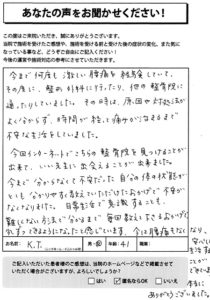 あなたの声をお聞かせください！
この度はご来院いただき、誠にありがとうございます。
当院で施術を受けたご感想や、施術を受ける前と受けた後の症状の変化、また気に
なっている事など、どうぞご自由にご記入ください！
今後の運営や施術対応の参考にさせていただきます。
今まで何度も激しい腰痛を経験していて、
その度に、整 に行ったり、他の整骨院に
通ったりしていました。その時は、原因や対処法が
よく分からず、時間が経って痛みが治まるまで
不安な生活をしていました。
今回インターネットでこちらの整骨院を見つけることが
出来て、いい先生に出会えることが出来ました。
今まで分からなくて不安だった自分の体の状態が
とても分かりやすく教えていただけたおかげで不安が
なくなりました。日常生活で意識すること
難しくない方法で分かるまで毎回教えて下さるおかげで
お名前 K.T. 男 年齢 41
ご記入いただいた患者様のご感想は、当院のホームページなどで掲載させて
いただく場合がございますが、よろしいでしょうか？
はい 匿名ならOK いいえ
ありがとうございました。